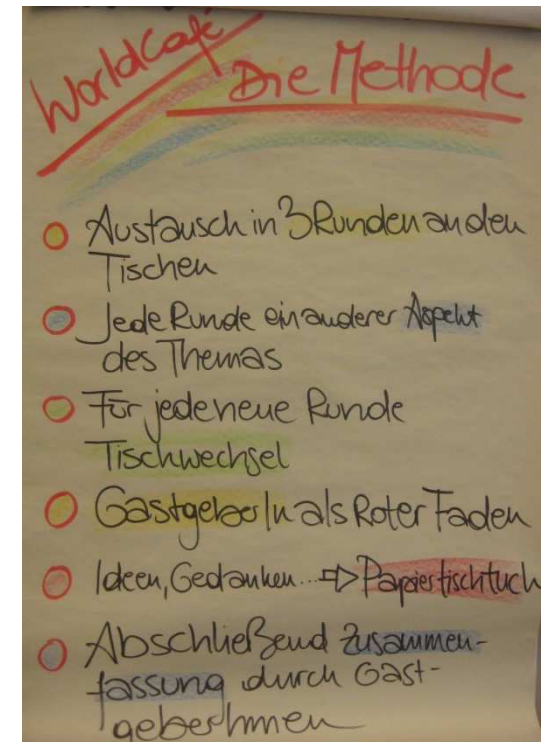 WorldCafé
Die Methode
Austausch in 3 Runden an den
Tischen
Jede Runde ein anderer Aspekt
des Themas
Für jede neue Runde
Tischwechsel
GastgeberIn als Roter Faden
Ideen, Gedanken... ⇨ Papiertischtuch
Abschließend Zusammen-
fassung durch Gast-
geberInnen